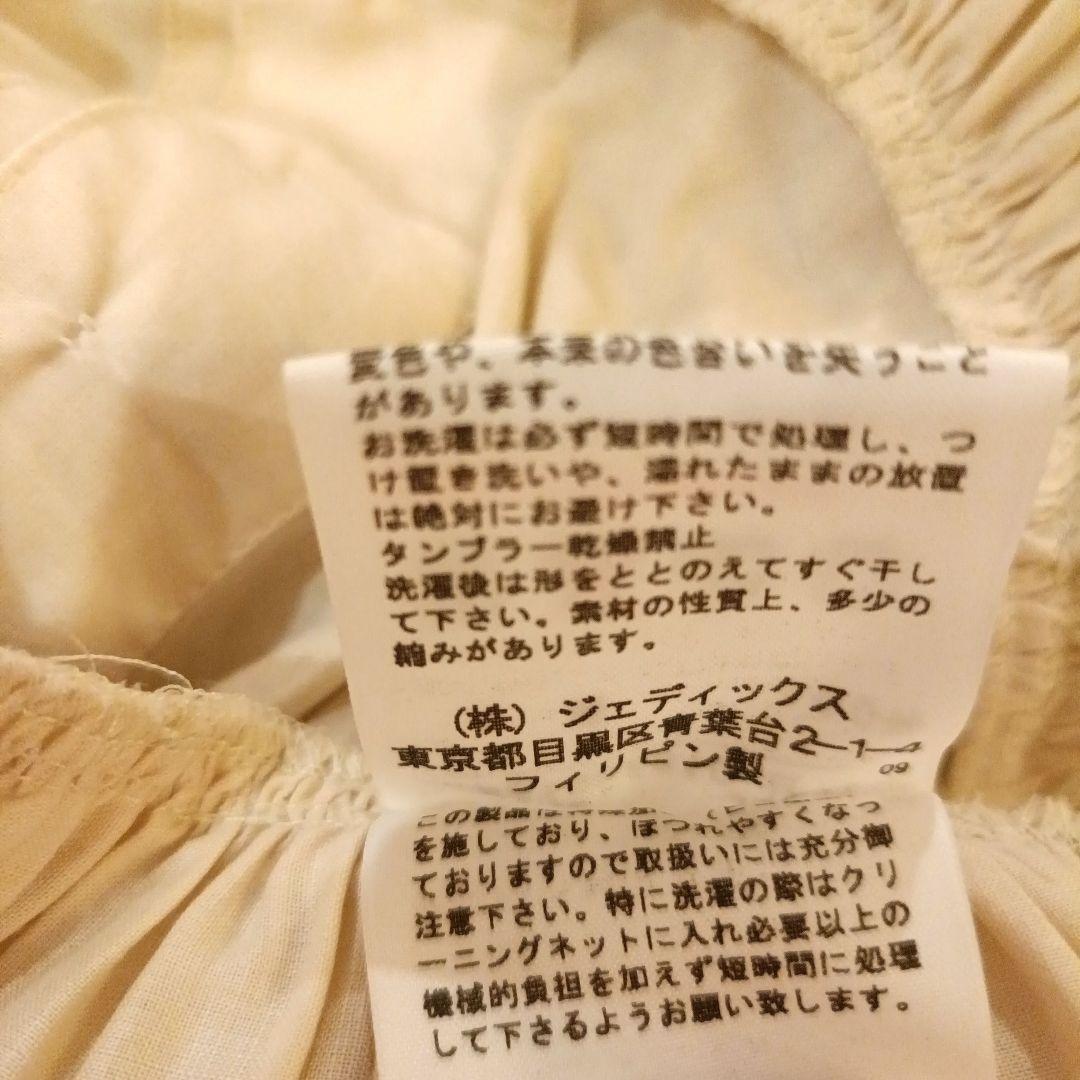 変色や、本来の色合いを失うこと
があります。
お洗濯は必ず短時間で処理し、つ
け置き洗いや、濡れたままの放置
は絶対にお避け下さい。
タンブラー乾燥禁止
洗濯後は形をととのえてすぐ干し
て下さい。素材の性質上、多少の
縮みがあります。
(株) ジェディックス
東京都目黒区青葉台2-1-4
フィリピン製
09
この製品は
を施しており、ほつれやすくなっ
ておりますので取扱いには充分御
注意下さい。特に洗濯の際はクリ
ーニングネットに入れ必要以上の
機械的負担を加えず短時間に処理
して下さるようお願い致します。